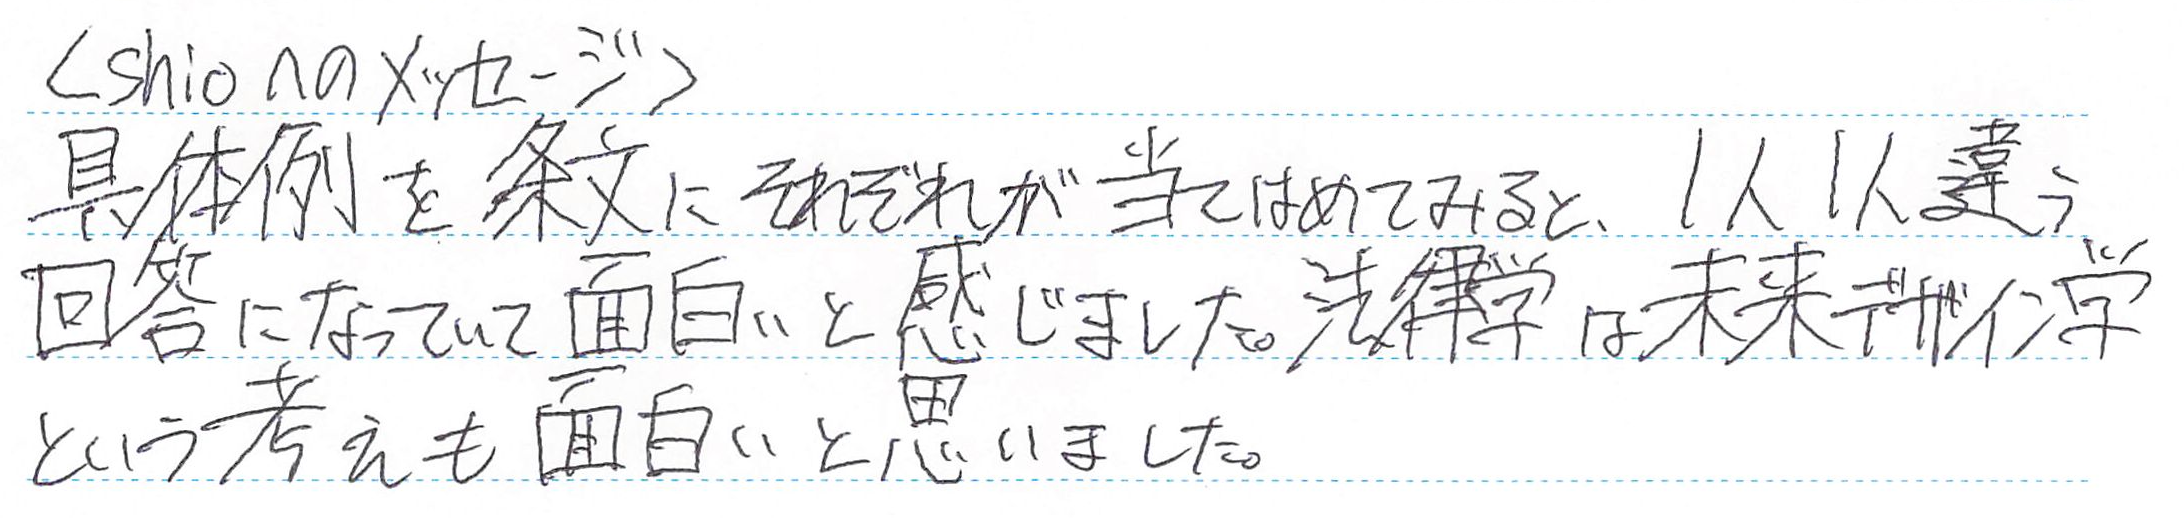 <shioへのメッセージ>
具体例を条文にそれぞれが当てはめてみると、1人1人違う
回答になっていて面白いと感じました。法律学は未来デザイン学
という考えも面白いと思いました。